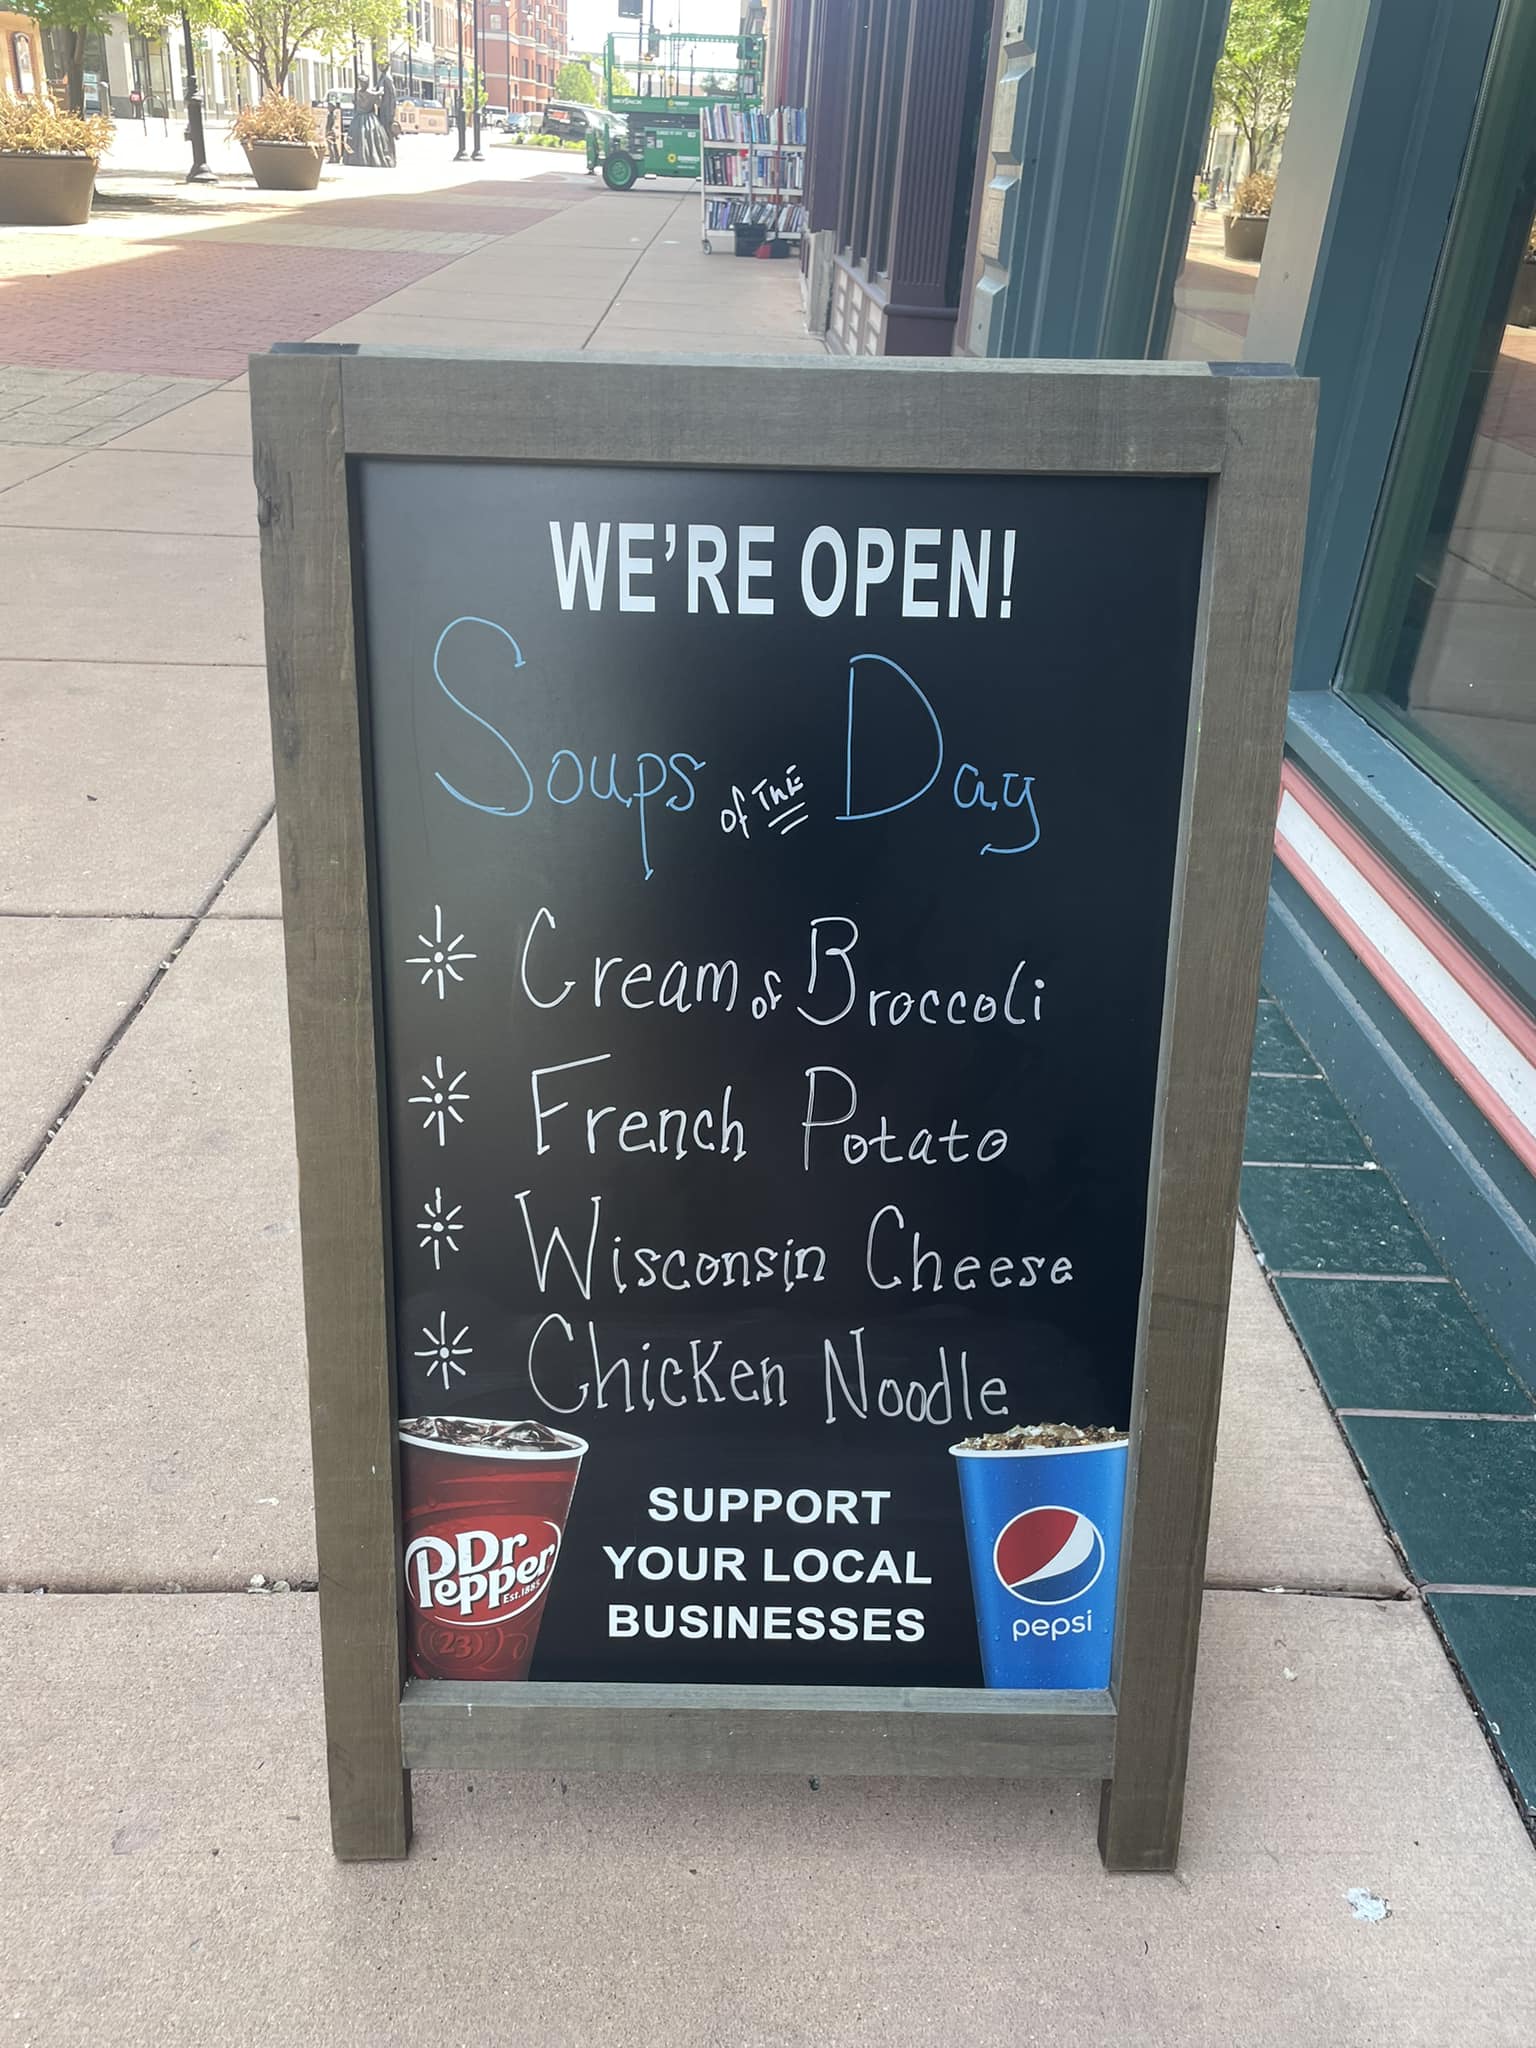 WE'RE OPEN!
Soups of THE Day
Cream of Broccoli
French Potato
Wisconsin Cheese
Chicken Noodle
SUPPORT
YOUR LOCAL
BUSINESSES
Dr
Pepper
Est. 1885
23
pepsi
SKYJACK